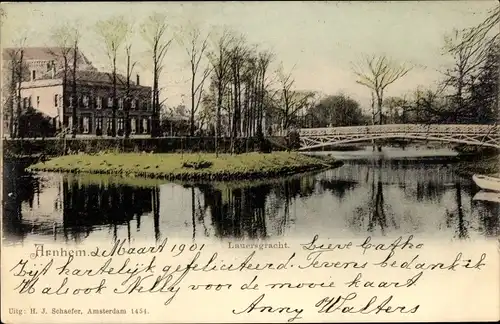 Arnhem. 2 Maart 1901 Lauersgracht. Lieve Catho
Zijt hartelijk gefeliciteerd. Tevens bedank ik
Uw alsook Nelly voor de mooie kaart
Anny Walters
Uitg: H. J. Schaefer, Amsterdam 1454.